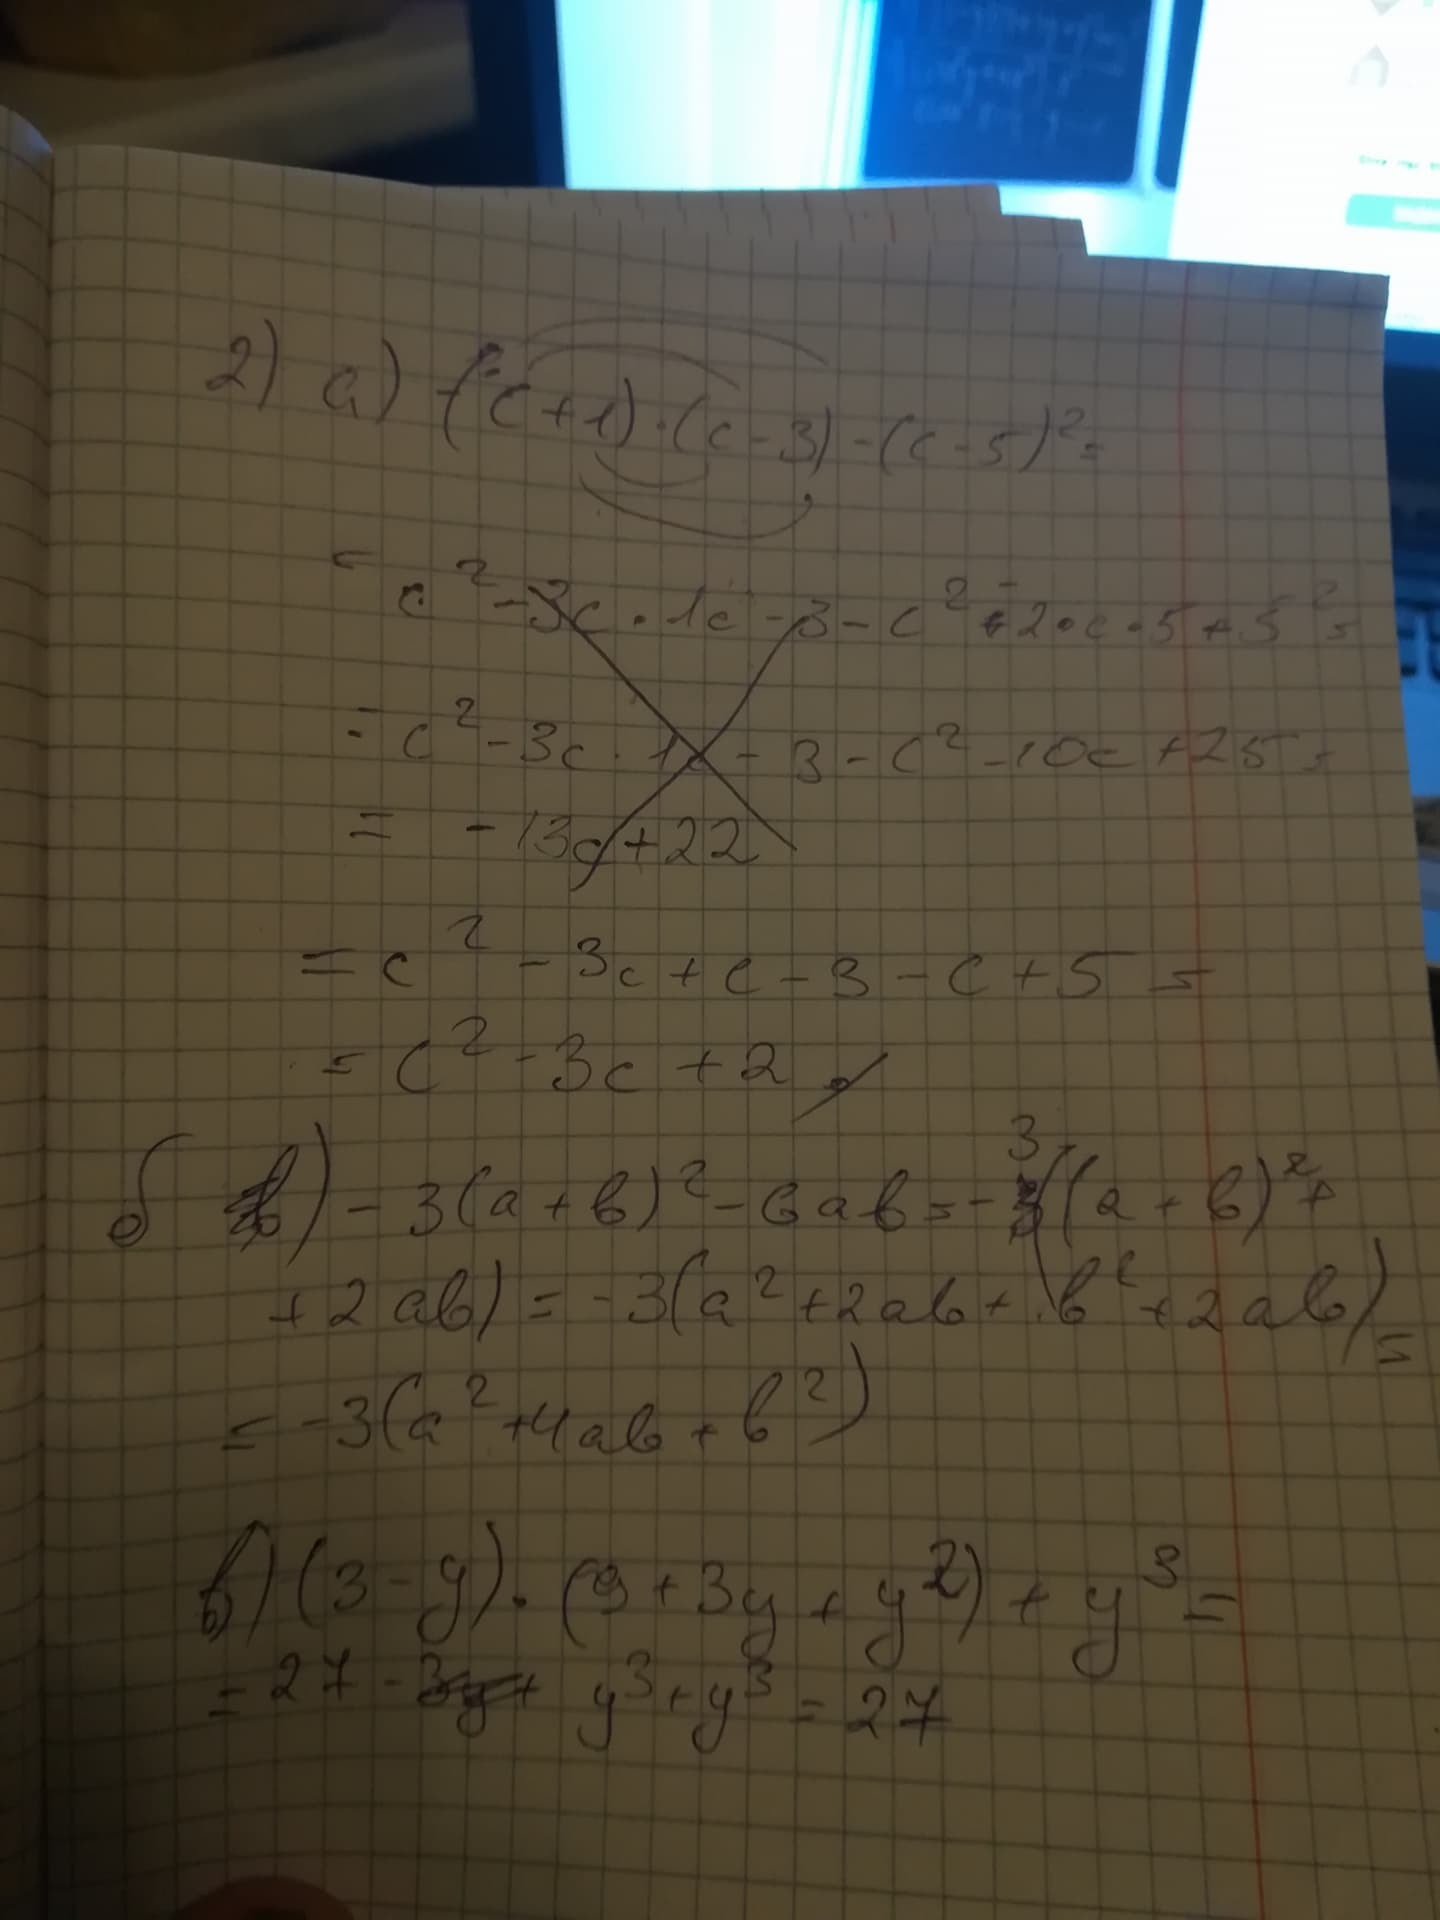 2) а) (c+1)·(c-3)-(c-5)²=
= c²-3c·1c-3-c²-2·c·5+5²=
= c²-3c·1c-3-c²-10c+25=
= -13c+22
= c²-3c+c-3-c+5=
= c²-3c+2
б) -3(a+b)²-6ab=-3((a+b)²+
+2ab)=-3(a²+2ab+b²+2ab)=
=-3(a²+4ab+b²)
в) (3-y)·(9+3y+y²)+y³=
=27-y³+y³=27